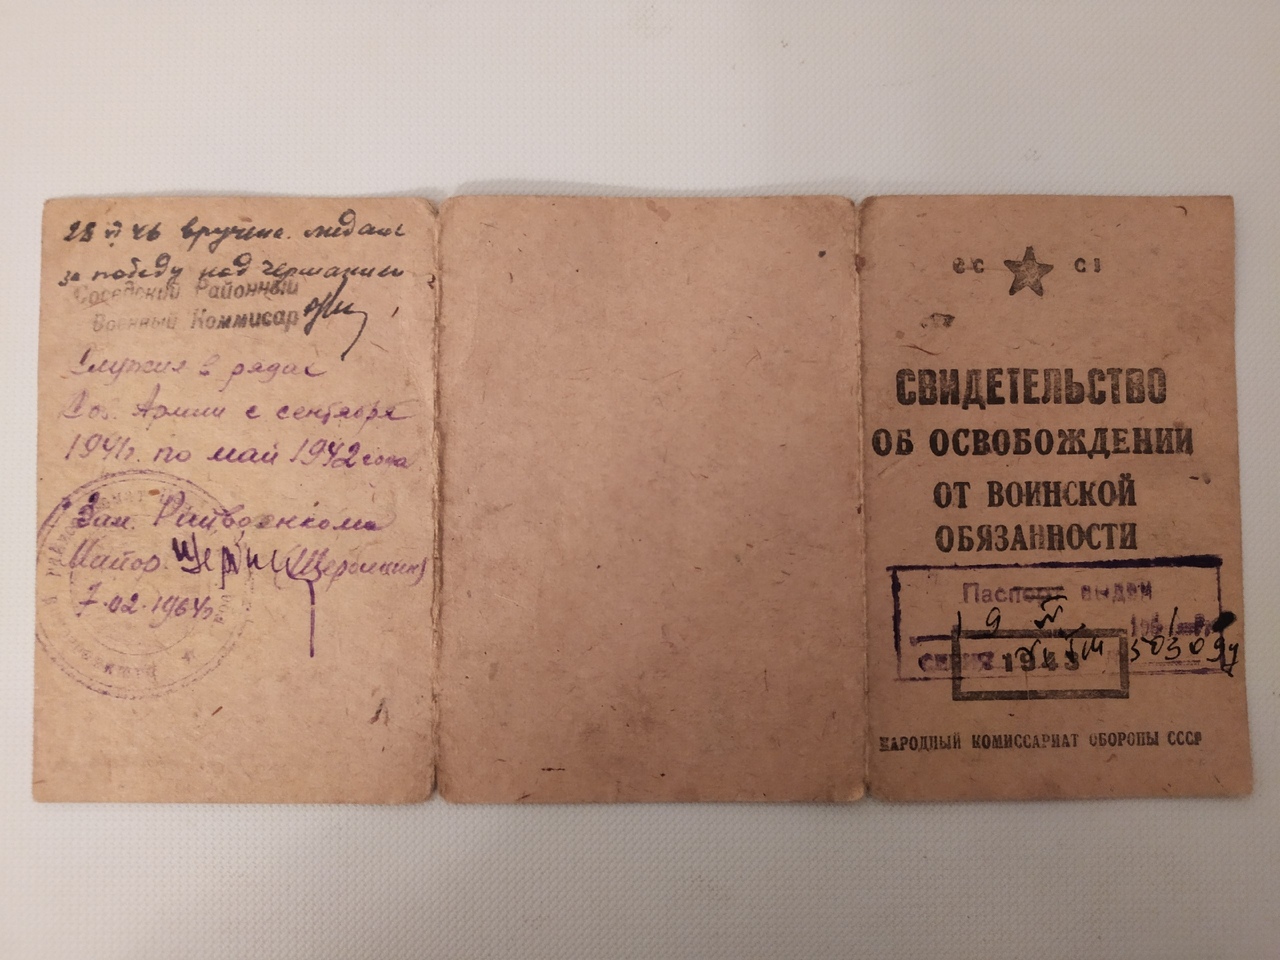 28 VI 46 вручена медаль
за победу над Германией
Соседский Районный
Военный Коммисар
Служил в рядах
Сов. Армии с сентября
1941г. по май 1942 года
Зам. Райвоенкома
Майор
7.02.1964г.
СС С
СВИДЕТЕЛЬСТВО
ОБ ОСВОБОЖДЕНИИ
ОТ ВОИНСКОЙ
ОБЯЗАННОСТИ
Паспорт выдан
19
серия 503097
1943
НАРОДНЫЙ КОМИССАРИАТ ОБОРОНЫ СССР